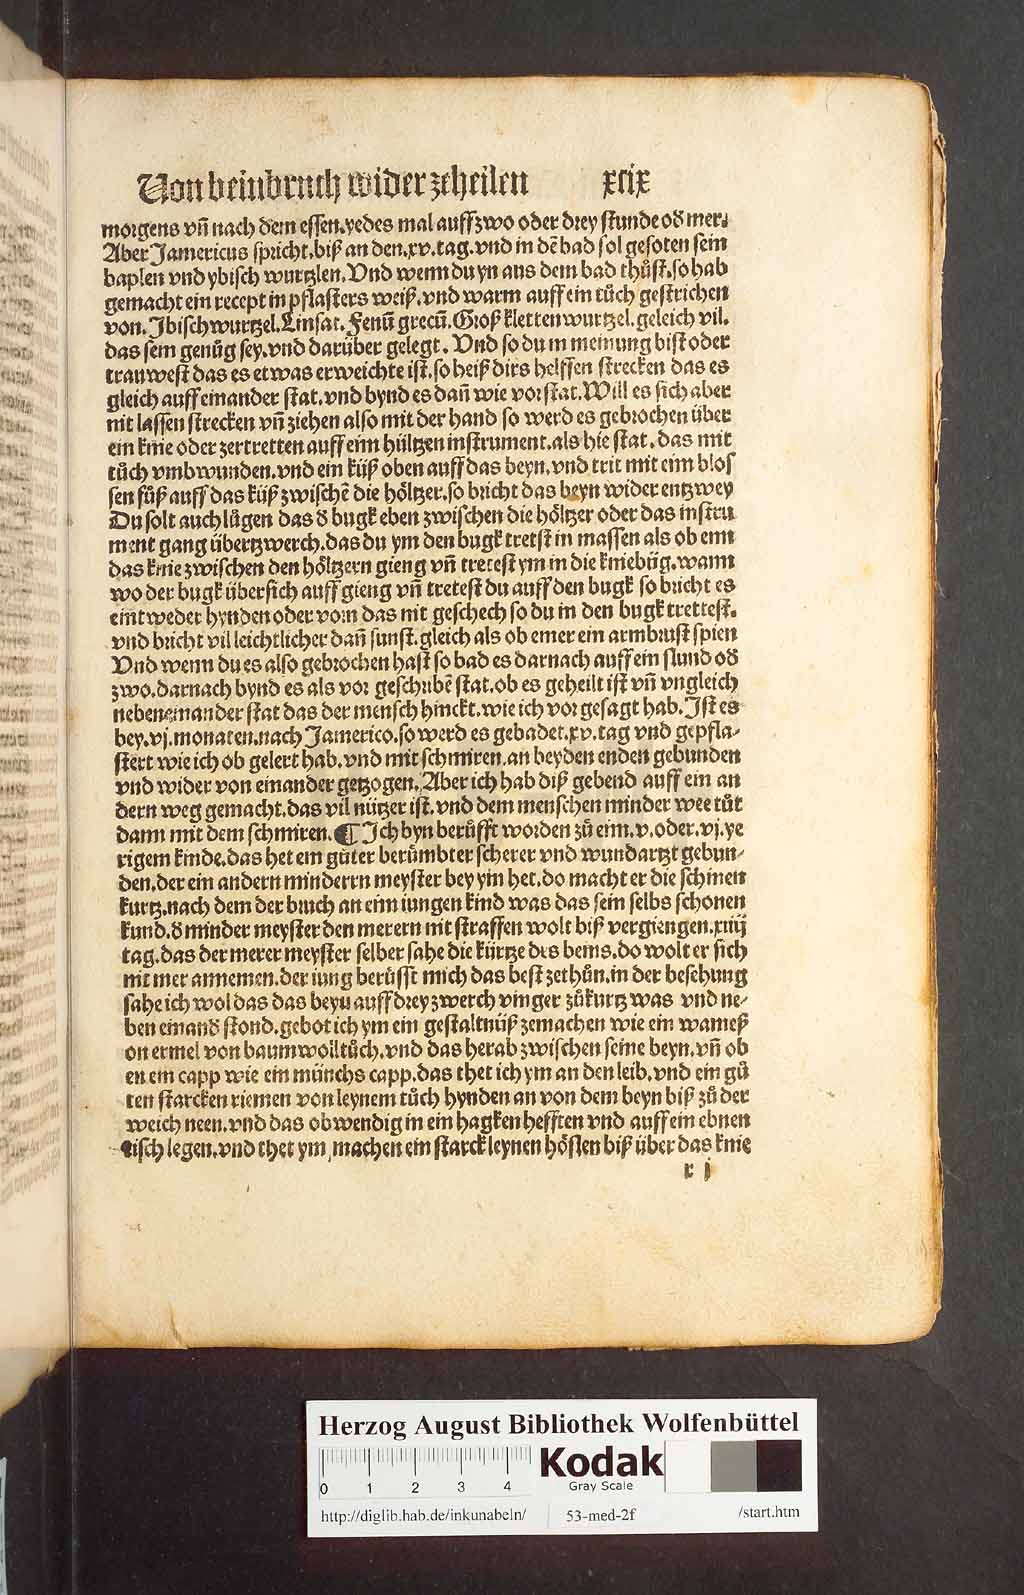 Von beinbruch wider zeheilen xcix
morgens vñ nach dem essen.yedes mal auff zwo oder drey stunde oď mer.
Aber Jamericus spricht.biß an den.xv.tag.vnd in dẽ bad sol gesoten sein
baplen vnd ybisch wurtzlen.Vnd wenn du yn aus dem bad thůst.so hab
gemacht ein recept in pflasters weiß.vnd warm auff ein tůch gestrichen
von.Jbischwurtzel.Linsat.Fenũ grecũ.Groß klettenwurtzel.geleich vil.
das sein genůg sey.vnd darüber gelegt. Vnd so du in meinung bist oder
trauwest das es etwas erweichte ist.so heiß dirs helffen strecken das es
gleich auff einander stat.vnd bynd es dañ wie vor stat.Will es sich aber
nit lassen strecken vñ ziehen also mit der hand so werd es gebrochen über
ein knie oder zertretten auff eim hültzen instrument.als hie stat.das mit
tůch vmbwunden.vnd ein küß oben auff das beyn.vnd trit mit eim blos
sen fůß auff das küß zwischẽ die höltzer.so bricht das beyn wider entzwey
Du solt auch lůgen das ď bugk eben zwischen die höltzer oder das instru
ment gang übertzwerch.das du ym den bugk tretst in massen als ob eim
das knie zwischen den höltzern gieng vñ tretest ym in die kniebüg.wann
wo der bugk übersich auff gieng vñ tretest du auff den bugk so bricht es
eintweder hynden oder vorn das nit geschech so du in den bugk trettest.
vnd bricht vil leichtlicher dañ sunst.gleich als ob einer ein armbrust spien
Vnd wenn du es also gebrochen hast so bad es darnach auff ein stund oď
zwo.darnach bynd es als vor geschribẽ stat.ob es geheilt ist vñ vngleich
nebeneinander stat das der mensch hinckt.wie ich vor gesagt hab.Jst es
bey.vj.monaten.nach Jamerico.so werd es gebadet.xv.tag vnd gepfla⸗
stert wie ich ob gelert hab.vnd mit schmiren.an beyden enden gebunden
vnd wider von einander getzogen.Aber ich hab diß gebend auff ein an
dern weg gemacht.das vil nützer ist.vnd dem menschen minder wee tůt
dann mit dem schmiren.¶ Jch byn berůfft worden zů eim.v.oder.vj.ye
rigem kinde.das het ein gůter berůmbter scherer vnd wundartzt gebun⸗
den.der ein andern minderrn meyster bey ym het.do macht er die schinen
kurtz.nach dem der bruch an eim iungen kind was das sein selbs schonen
kund.ď minder meyster den merern nit straffen wolt biß vergiengen.xiiij
tag.das der merer meyster selber sahe die kürtze des beins.do wolt er sich
nit mer annemen.der iung berůfft mich das best zethůn.in der besehung
sahe ich wol das das beyn auff drey zwerch vinger zůkurtz was vnd ne⸗
ben einanď stond.gebot ich ym ein gestaltnüß zemachen wie ein wameß
on ermel von baumwolltůch.vnd das herab zwischen seine beyn.vñ ob
en ein capp wie ein münchs capp.das thet ich ym an den leib.vnd ein gů
ten starcken riemen von leynem tůch hynden an von dem beyn biß zů der
weich neen.vnd das obwendig in ein hagken hefften vnd auff ein ebnen
tisch legen.vnd thet ym machen ein starck leynen höslen biß über das knie
r j
Herzog August Bibliothek Wolfenbüttel
0 1 2 3 4
Kodak
Gray Scale
http://diglib.hab.de/inkunabeln/ 53-med-2f /start.htm